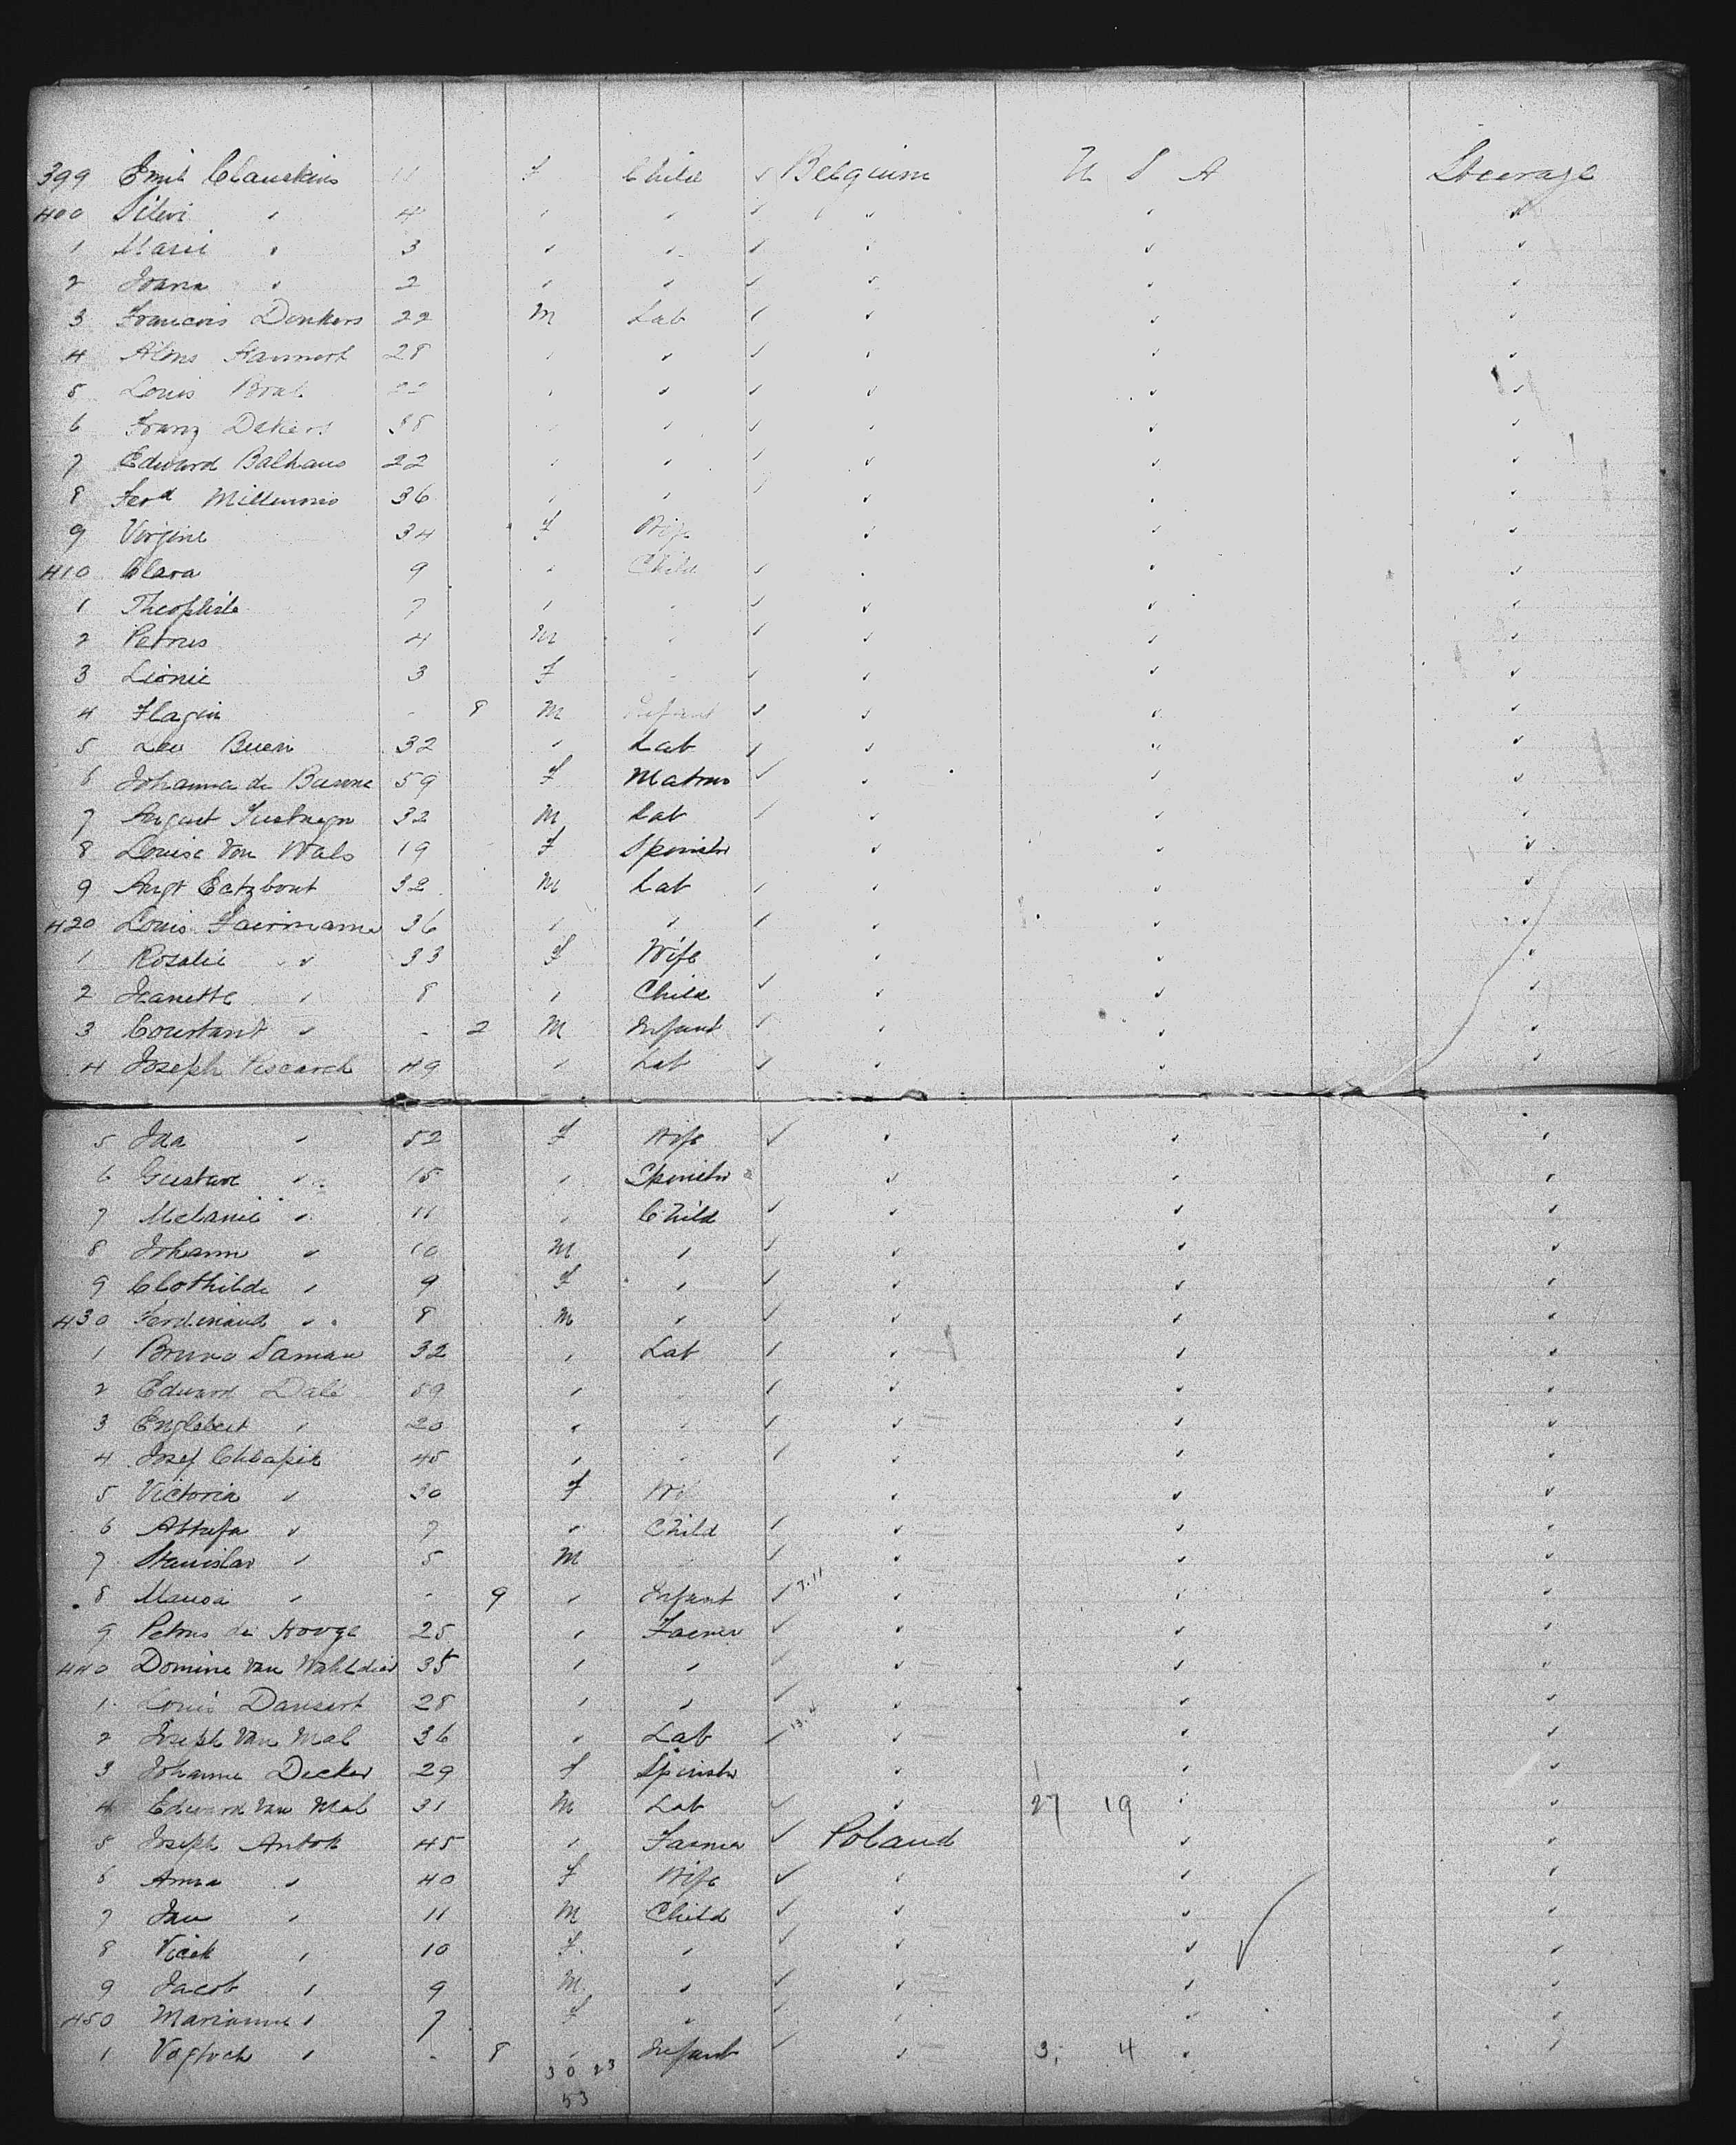 399 Emil Clauskins 11 F Child ✓ Belgium U S A Steerage
400 Silvi " 4 " " ✓ " " "
1 Marie " 3 " " ✓ " " "
2 Joana " 2 " " ✓ " " "
3 Francois Donkers 22 M Lab ✓ " " "
4 Alons 28 " " ✓ " " "
5 Louis Brat " " ✓ " " "
6 Franz 38 " " ✓ " " "
7 Edward Balhaus 22 " " ✓ " " "
8 Ferd 36 " " ✓ " " "
9 Virgine 34 F Wife " " "
410 Clara 9 " Child ✓ " " "
1 7 " " ✓ " " "
2 Petrus 4 M " ✓ " " "
3 Lionie 3 F " ✓ " " "
4 - 8 M Infant ✓ " " "
5 Leo Bueri 32 " Lab ✓ " " "
6 Johanna de 59 F Matron ✓ " " "
7 August 32 M Lab ✓ " " "
8 Louise Von Wals 19 F Spinster " " "
9 Augt Eetzbout 32 M Lab ✓ " " "
420 Louis Fairmame 36 " " ✓ " " "
1 Rosalie " 33 F Wife " " "
2 Jeanette " 8 " Child ✓ " " "
3 Constant " - 2 M Infant ✓ " " "
4 Joseph Piscarck 49 " Lab ✓ " " "
5 Ida " 52 F Wife ✓ " " "
6 Gustave " 15 " Spinster " " "
7 Melanie " 11 " Child ✓ " " "
8 Johann " 10 M " ✓ " " "
9 Clothilde " 9 F " ✓ " " "
430 Ferdinand " 8 M " ✓ " " "
1 Bruno Saman 32 " Lab ✓ " " "
2 Edward Dale 59 " " ✓ " " "
3 Englebert " 20 " " ✓ " " "
4 Josef Chlapik 45 " " ✓ " " "
5 Victoria " 30 F Wif " " "
6 " 7 " Child ✓ " " "
7 Stanislav " 5 M " ✓ " " "
8 " - 9 " Infant ✓ 7.11 " " "
9 Petrus de Hooge 25 " Farmer ✓ " " "
440 Domine Van 35 " " ✓ " " "
1 Louis Dansert 28 " " ✓ " " "
2 Joseph Van Mal 36 " Lab ✓ 13.4 " " "
3 Johanne Decker 29 F Spinster " " "
4 Edward Van Mal 31 M Lab ✓ " 27 19 " "
5 Joseph Antok 45 " Farmer ✓ Poland " "
6 Anna " 40 F Wife ✓ " " "
7 Jan " 11 M Child ✓ " " "
8 Vicek " 10 F " ✓ " " "
9 Jacob " 9 M " ✓ " " "
450 Marianne " 7 F " ✓ " " "
1 " - 8 " Infant ✓ " 3. 4 " "
30 23
53